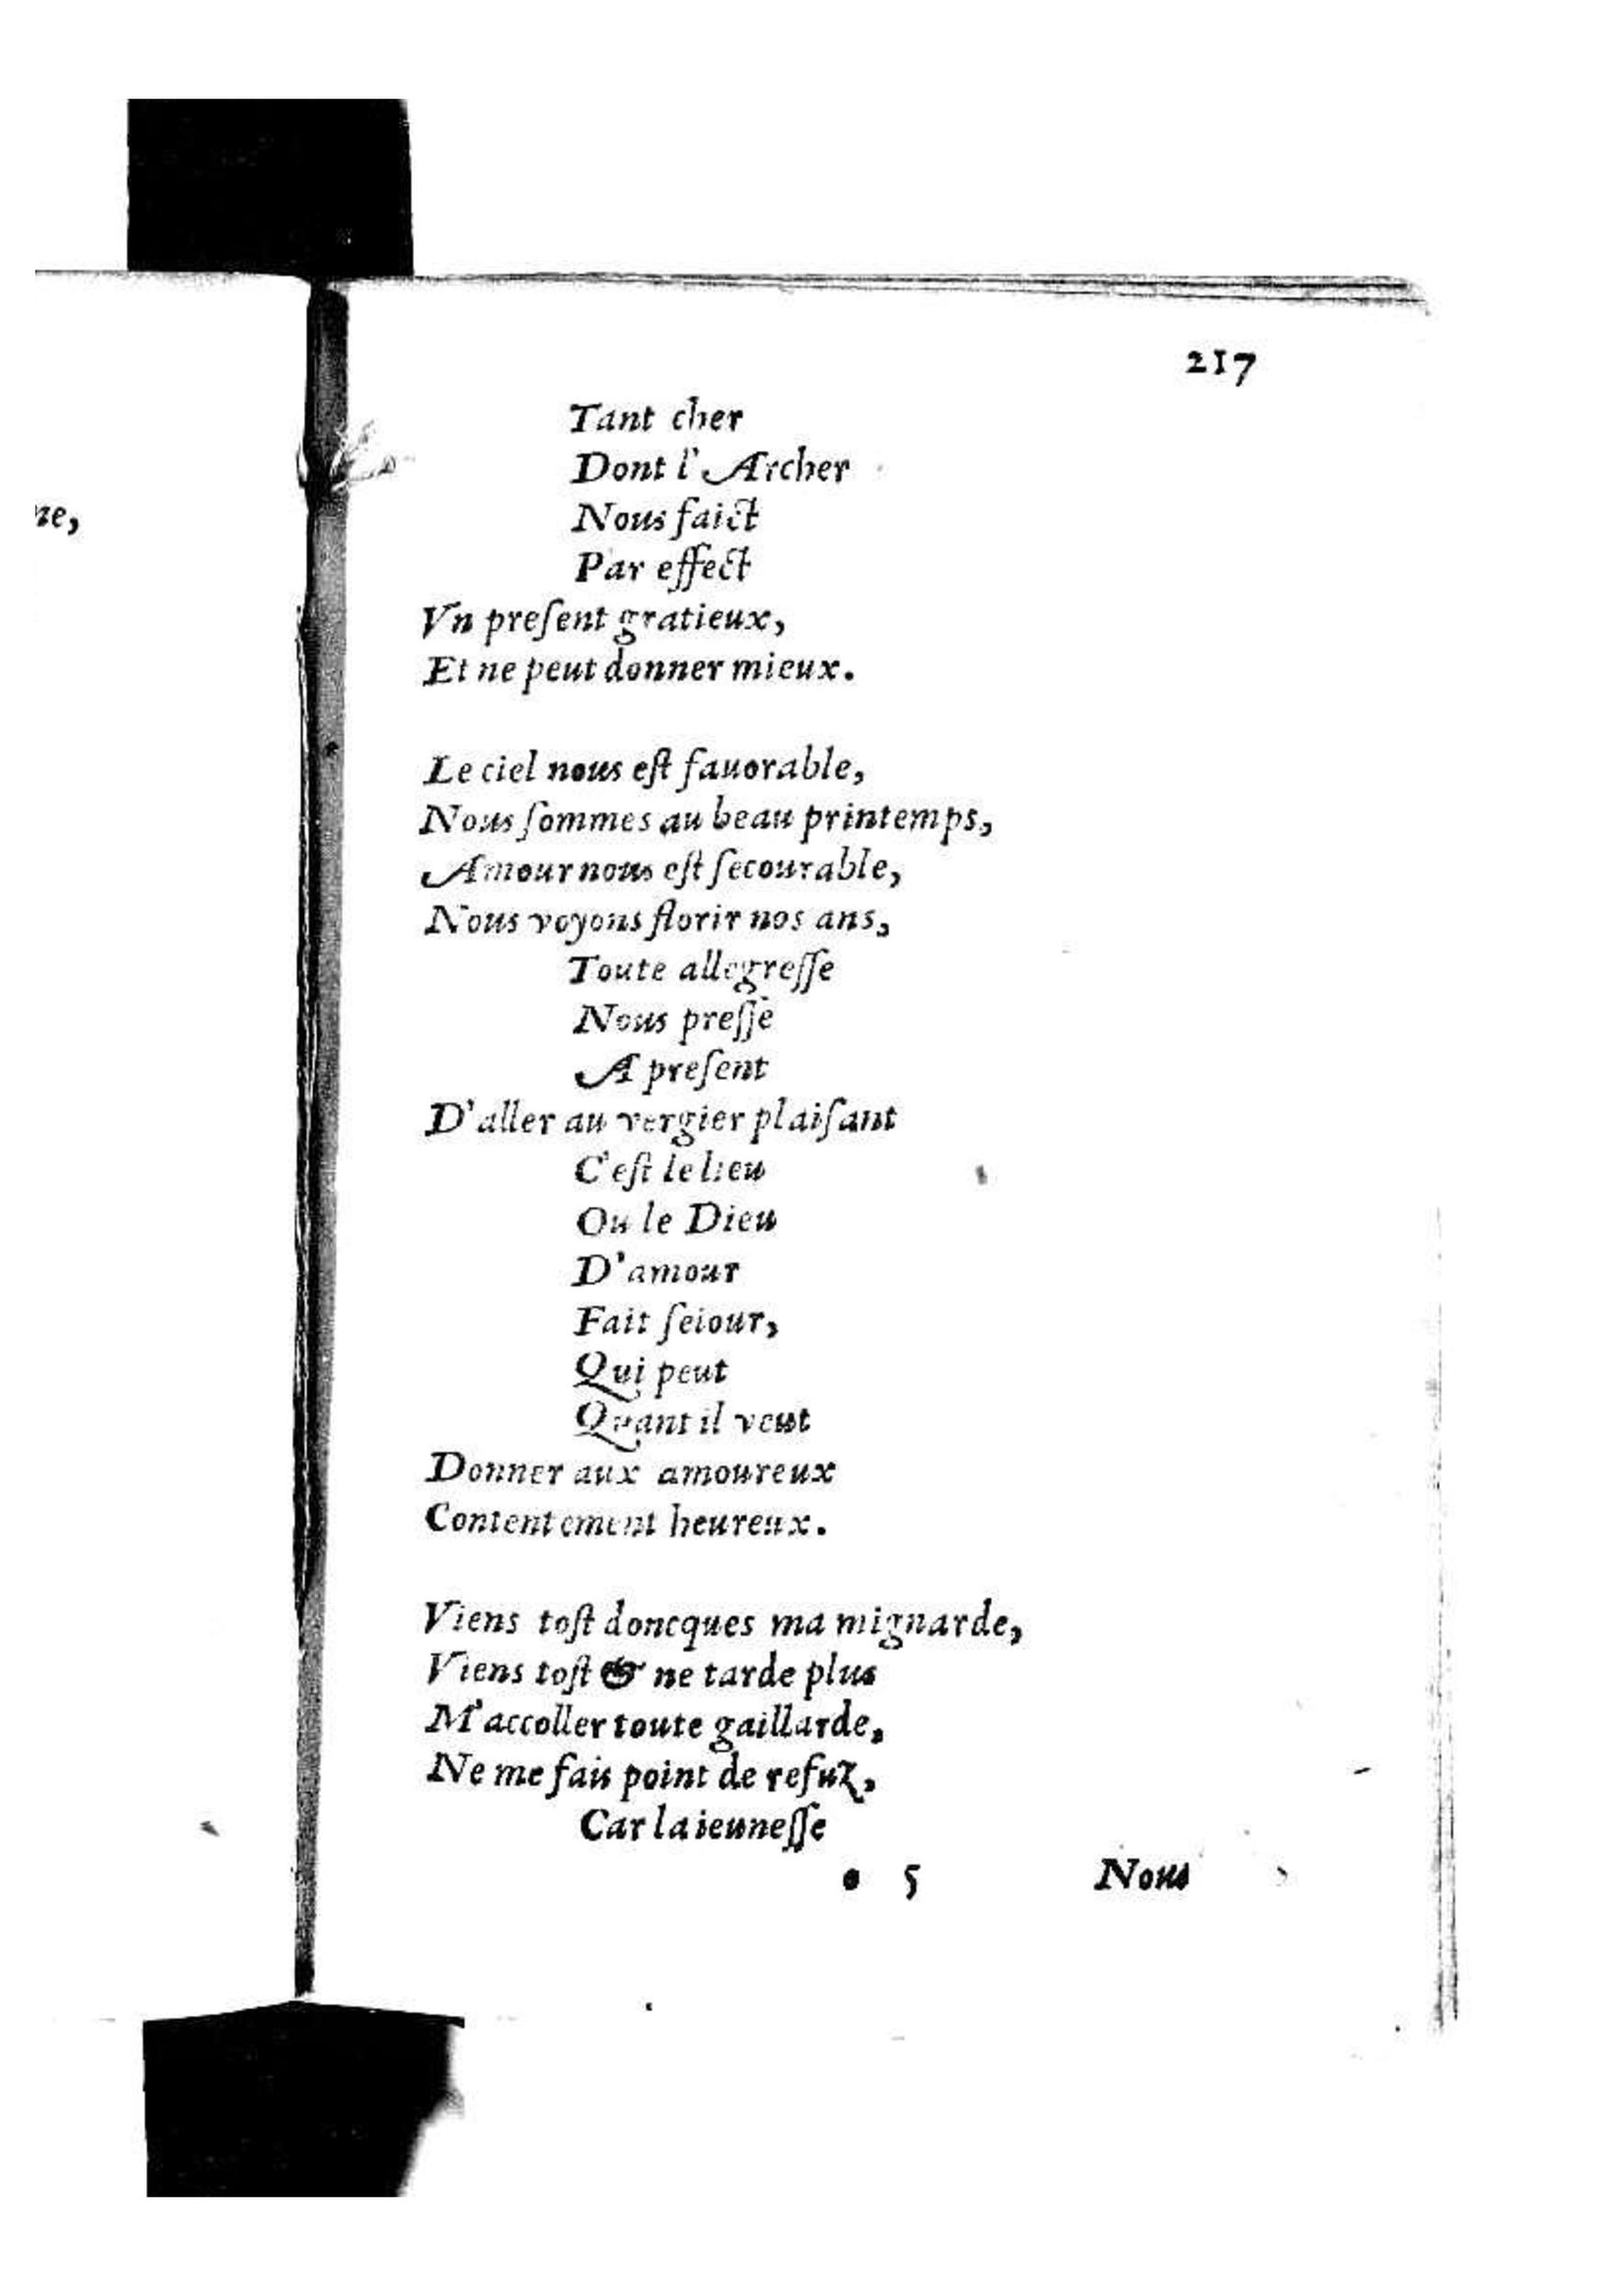 217
ne,
Tant cher
Dont l'Archer
Nous faict
Par effect
Vn preſent gratieux,
Et ne peut donner mieux.
Le ciel nous eſt fauorable,
Nous ſommes au beau printemps,
Amour nous eſt ſecourable,
Nous voyons florir nos ans,
Toute allegreſſe
Nous preſſe
A preſent
D'aller au vergier plaiſant
C'eſt le lieu
Ou le Dieu
D'amour
Fait ſeiour,
Qui peut
Quant il veut
Donner aux amoureux
Contentement heureux.
Viens toſt doncques ma mignarde,
Viens toſt & ne tarde plus
M'accoller toute gaillarde,
Ne me fais point de refuz,
Car la ieuneſſe
o 5 Nous